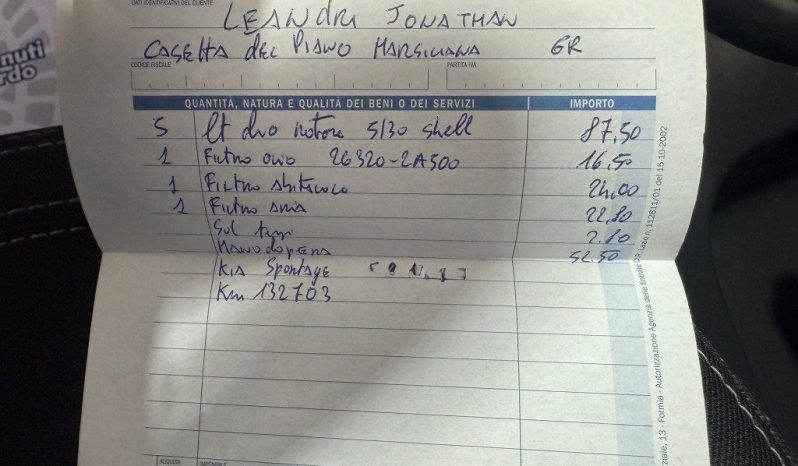 DATI IDENTIFICATIVI DEL CLIENTE
LEANDRI JONATHAN
CASETTA DEL PIANO MARSILIANA GR
CODICE FISCALE PARTITA IVA
QUANTITÀ, NATURA E QUALITÀ DEI BENI O DEI SERVIZI IMPORTO
5 lt olio motore 5/30 shell 87,50
1 Filtro olio 26320-2A500 16,50
1 Filtro abitacolo 24,00
1 Filtro aria 22,80
2,80
Manodopera 52,50
KIA Sportage
Km 132703
nuti
rdo
ziale, 13 - Formia - Autorizzazione Agenzia delle Entrate D.R. Lazio n. 112811/01 del 15-10-2002
ALIQUOTA